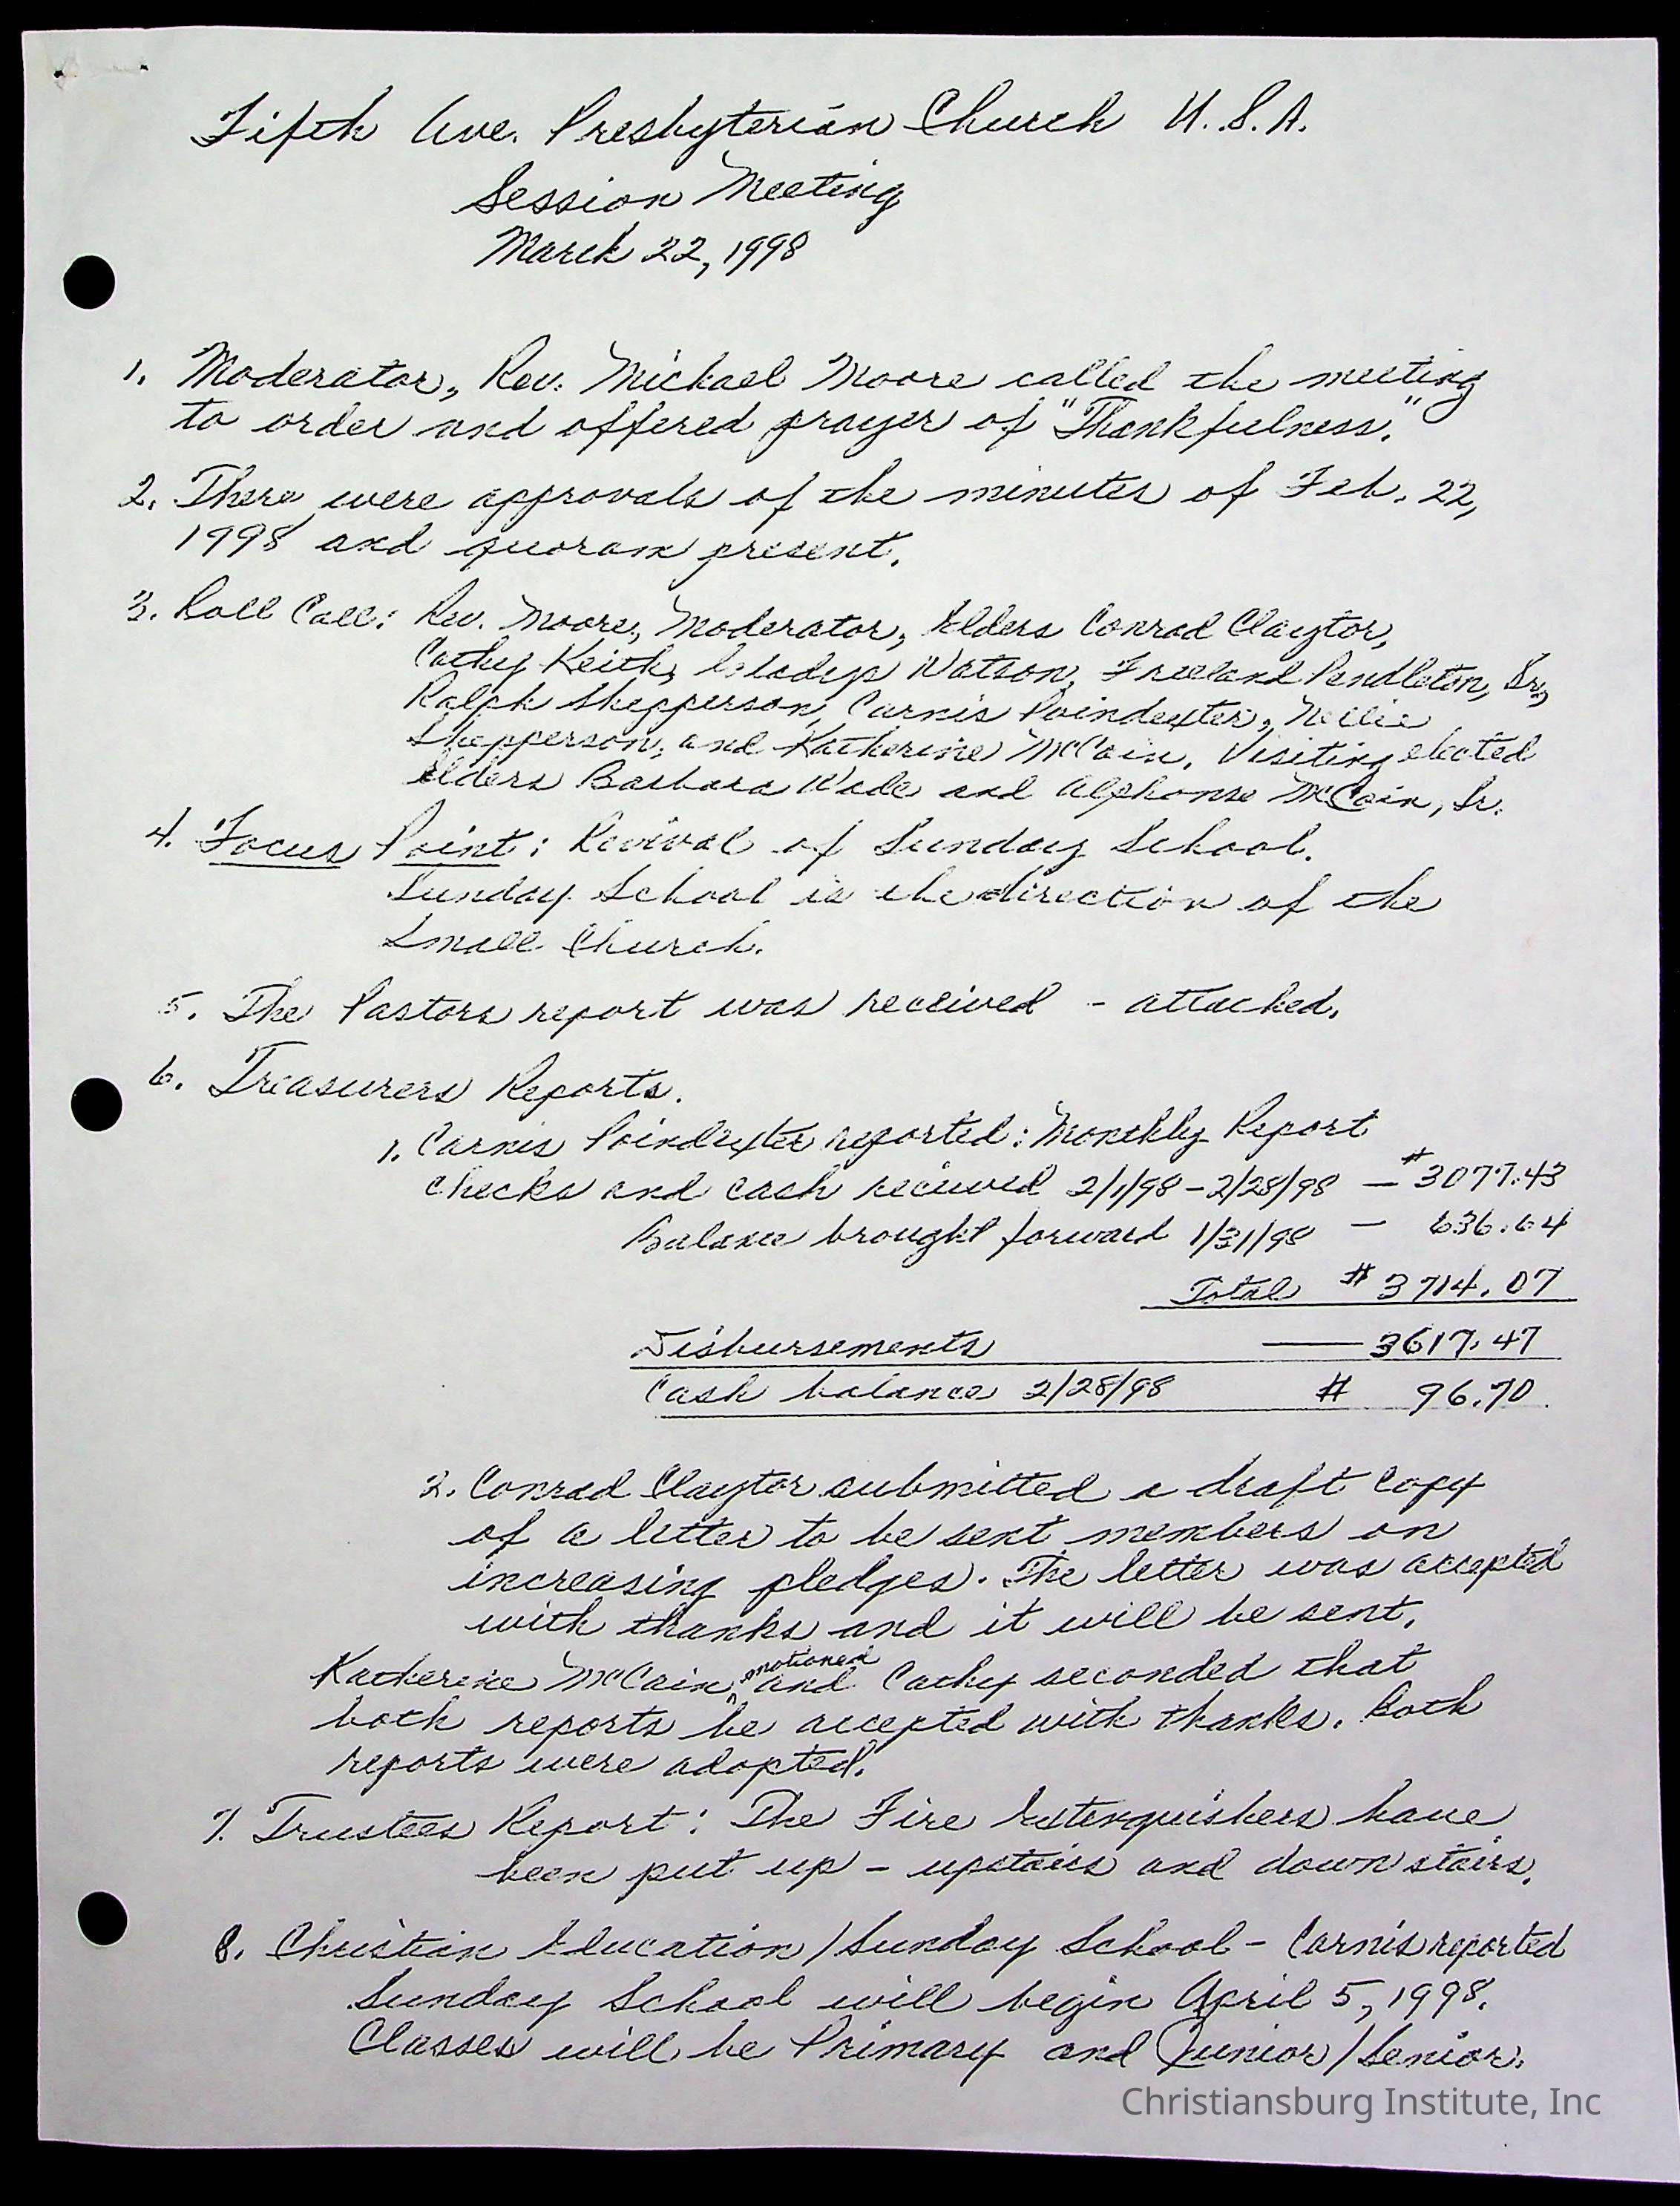 Fifth Ave. Presbyterian Church U.S.A.
Session Meeting
March 22, 1998
1. Moderator, Rev. Michael Moore called the meeting
to order and offered prayer of "Thankfulness."
2. There were approvals of the minutes of Feb. 22,
1998 and quoram present.
3. Roll Call: Rev. Moore, Moderator, Elders Conrad Claytor,
Cathy Keith, Gladys Watson, Freeland Pendleton, Sr,
Ralph Shepperson, Carnis Poindexter, Nellie
Shepperson, and Katherine McCain. Visiting elected
elders Barbara Wade and Alphonso McCain, Sr.
4. Focus Point: Revival of Sunday School.
Sunday School is the direction of the
Small Church.
5. The Pastors report was received - attached.
6. Treasurers Reports.
1. Carnis Poindexter reported: Monthly Report
Checks and cash received 2/1/98 - 2/28/98 — $3077.43
Balance brought forward 1/31/98 — 636.64
Total $3714.07
Disbursements — 3617.47
Cash balance 2/28/98 $ 96.70
2. Conrad Claytor submitted a draft copy
of a letter to be sent members on
increasing pledges. The letter was accepted
with thanks and it will be sent.
Katherine McCain motioned and Cathy seconded that
both reports be accepted with thanks. Both
reports were adopted.
7. Trustees Report: The Fire Extenquishers have
been put up - upstairs and down stairs.
8. Christian Education/Sunday School - Carnis reported
Sunday School will begin April 5, 1998.
Classes will be Primary and Junior/Senior.
Christiansburg Institute, Inc